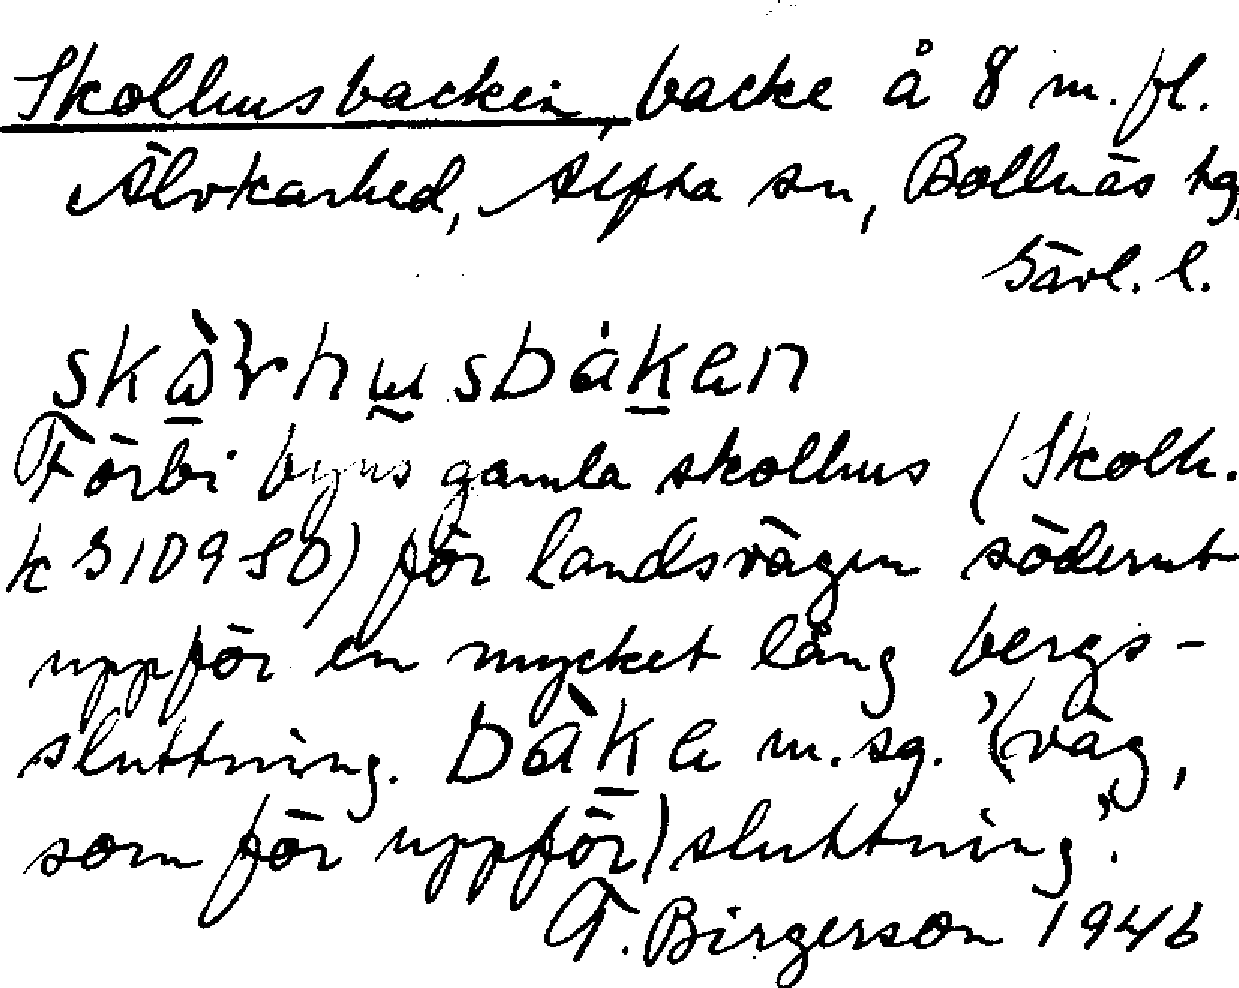 Skolhusbacken, backe å 8 m. fl.
Älvkarhed, Alfta sn, Bollnäs tg,
Gävl. l.
skὰ̠ɽhṵsbákan
Förbi byns gamla skolhus (Skolh.
k 3109 50) för landsvägen söderut
uppför en mycket lång bergs-
sluttning. bàka m. sg. "(väg,
som för uppför) sluttning".
T. Birgerson 1946